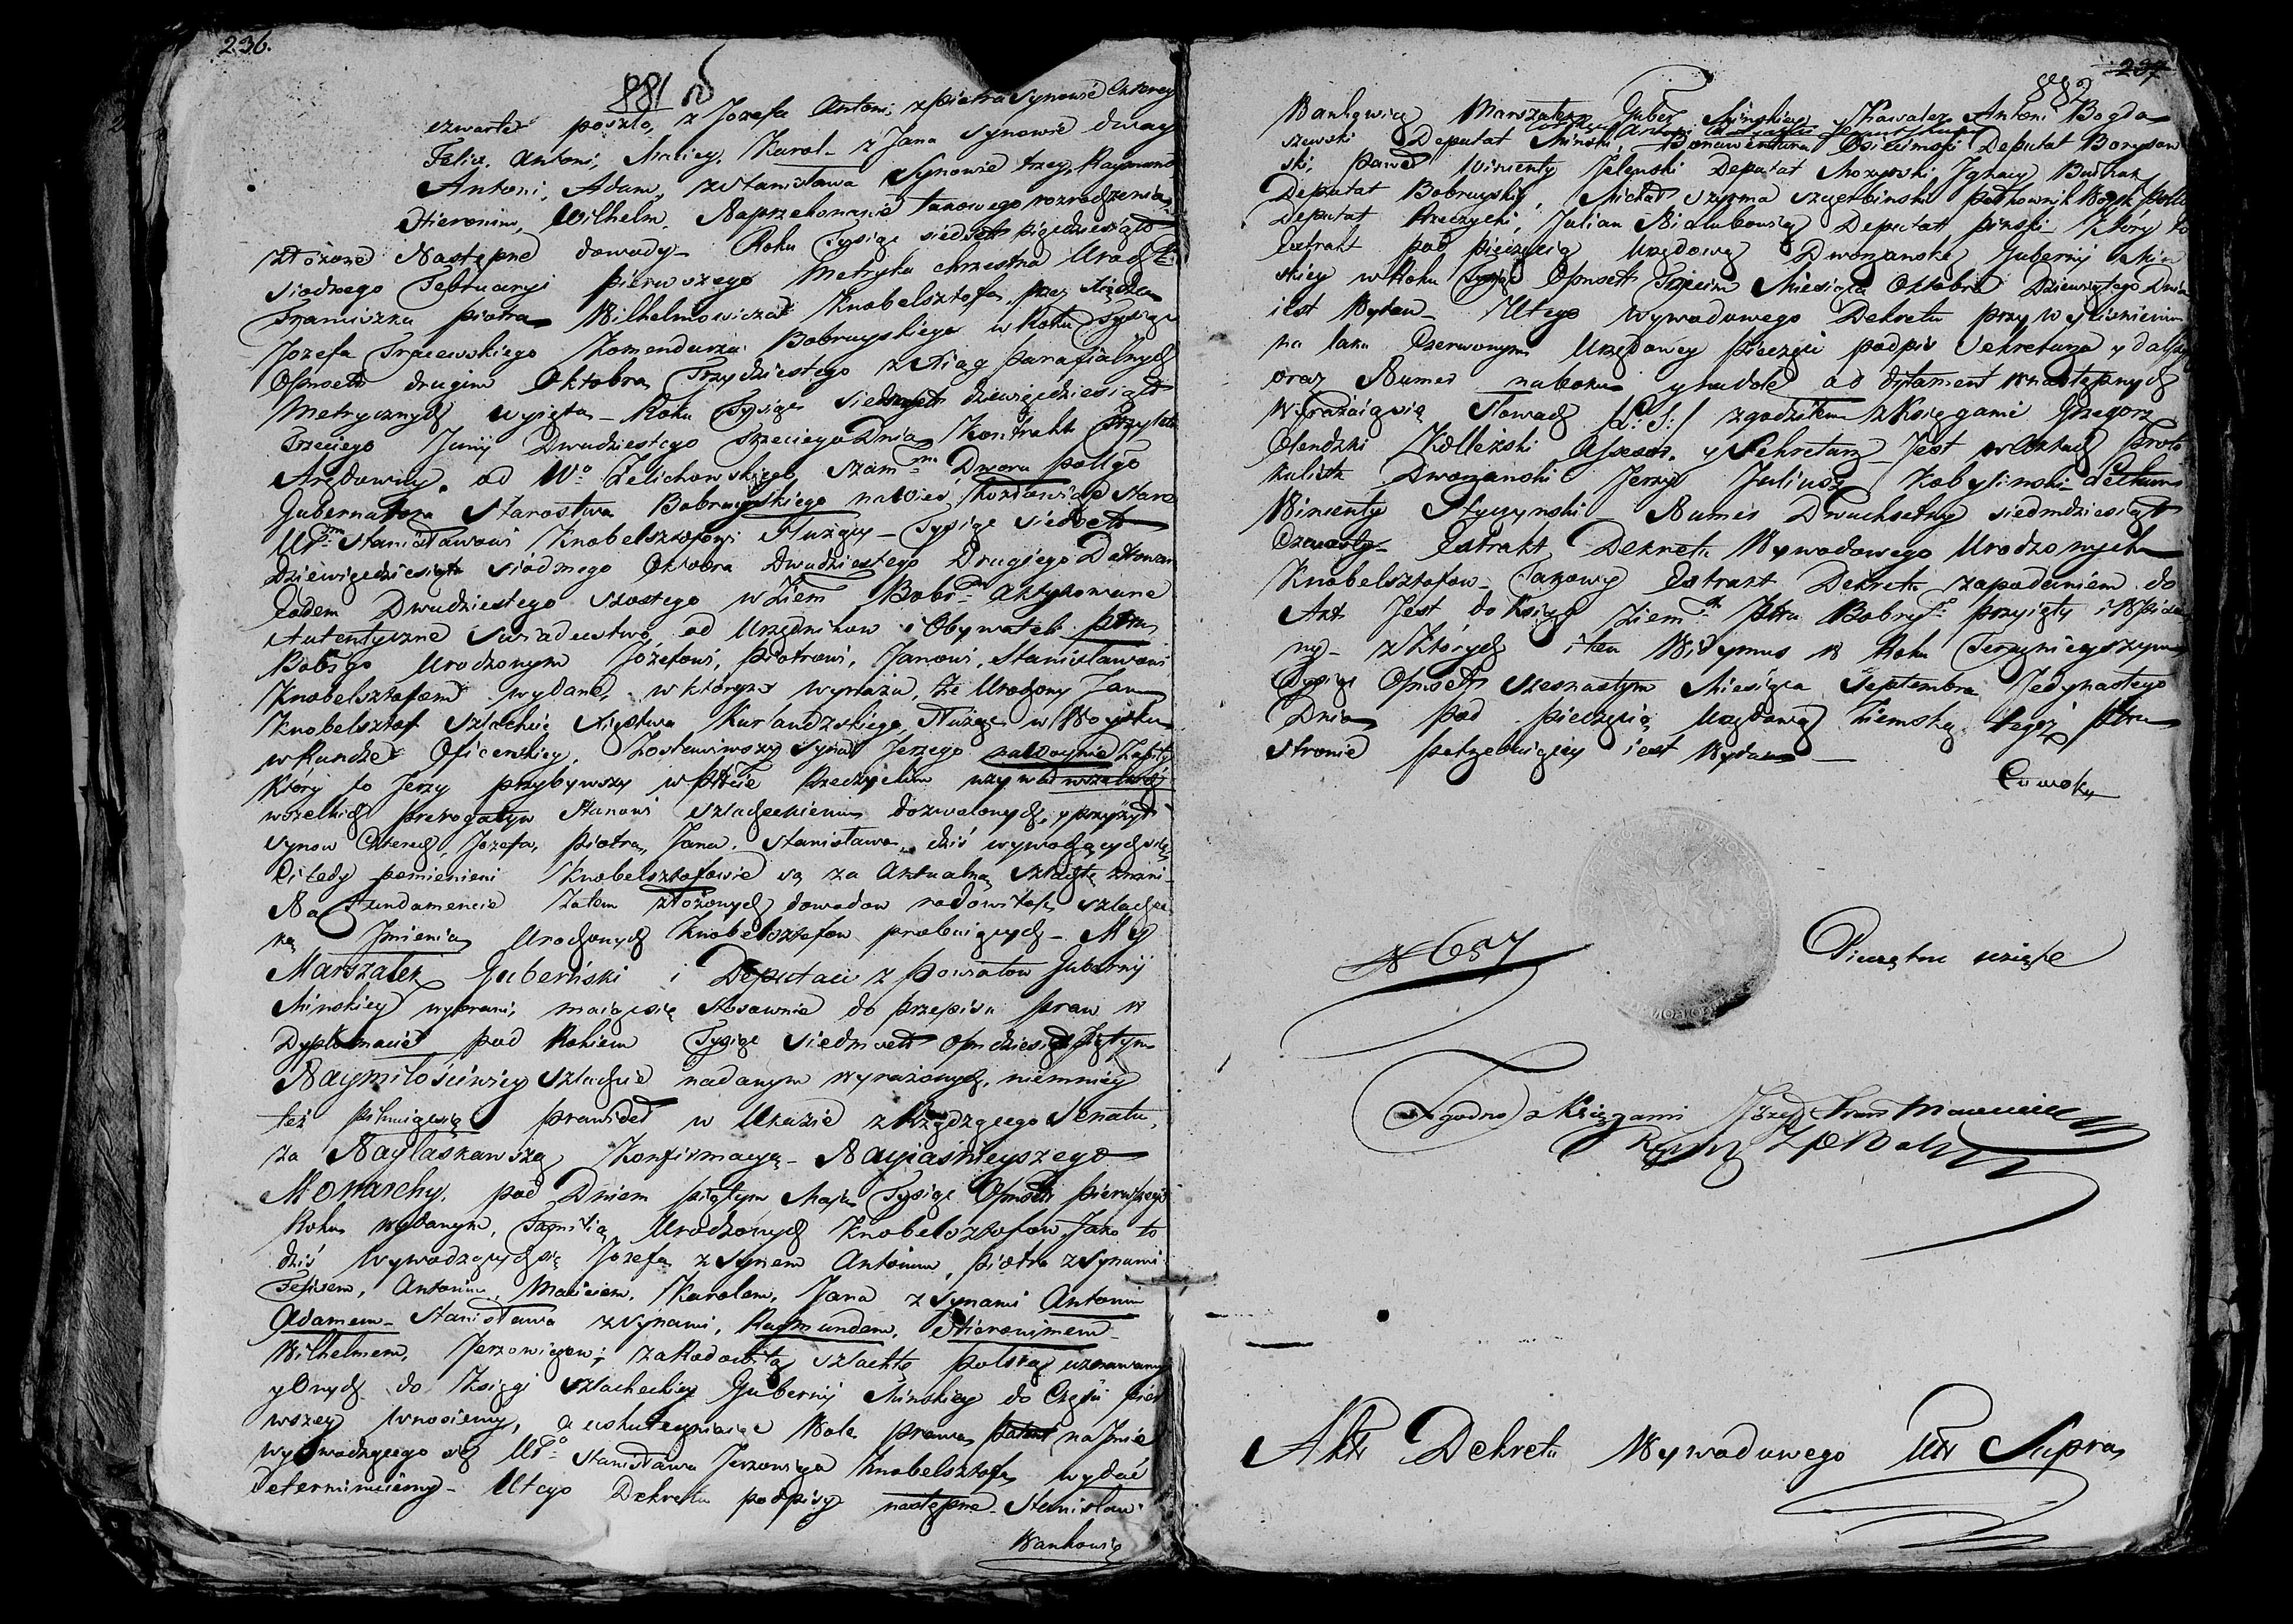 236.
881
czwarte poszło, z Jozefa Antoni, z Piotra synowie czterey
Felix, Antoni, Maciey, Karol - z Jana synowie dway
Antoni, Adam, z Stanisława synowie trzey, Raymund
Hieronim, Wilhelm. Na przekonanie takowego rozrodzenia
złożone Następne dowody - Roku Tysiąc siedmset pięćdziesiąt
siodmego Februaryi pierwszego Metryka chrzestna Urodz:
Franciszka Piotra Wilhelmowicza Knobelsztofa, przez Xiędza
Jozefa Komendarza Bobruyskiego w Roku Tysiąc
Ośmset drugim Oktobra Trzydziestego z Xiąg parafialnych
Metrycznych wyięta - Roku Tysiąc siedmset dziewięćdziesiąt
Trzeciego Junij Dwudziestego Trzeciego Dnia Kontrakt
Arędowny od Wo Zelichowskiego Dworu
Gubernatora Starostwa Bobruyskiego na Wieś
Stanisławowi Knobelsztofowi służący - Tysiąc siedmset
Dziewięćdziesiąt siodmego Oktobra Dwudziestego Drugiego Datowane
Eodem Dwudziestego szostego w Ziem Bobr Aktykowane
Autentyczne świadectwo od Urzędnikow i Obywateli Pttu
Bobrgo Urodzonym Jozefowi, Piotrowi, Janowi, Stanisławowi
Knobelsztofom wydane, w którym wyraża, że Urodzony Jan
Knobelsztof szlachcic Xięstwa Kurlandzkiego, służąc w Woysku
w Randze Oficerskiey, Zostawiwszy syna Jerzego
Który to Jerzy przybywszy w Pttcie Rzeczyckim używał
wszelkich prerogatyw Stanowi szlacheckiemu dozwolonych, y
synow czterech, Jozefa, Piotra, Jana, Stanisława, dziś wywodzących się
Ci tedy pomienieni Knobelsztofowie są za Aktualną szlachtę znani -
Na Fundamencie Zatem złożonych dowodow rodowitość szlachec
ką Jmienia Urodzonych Knobelsztofow probuiących - My
Marszałek Guberński i Deputaci z Powiatow Gubernij
Mińskiey wybrani, maiąc się stosownie do przepisu praw w
Dyplomacie pod Rokiem Tysiąc siedmset ośmdziesiąt Piątym
Naymiłościwiey szlachcie nadanym wyrażonych, niemniey
też pilnuiąc się prawideł w Ukazie z Rządzącego Senatu,
za Nayłaskawszą Konfirmacyą - Nayiaśnieyszego
Monarchy, pod Dniem piątym Maja Tysiąc Ośmset pierwszego
Roku wydanym, Familią Urodzonych Knobelsztofow Jako to
dziś Wywodzących się Jozefa z synem Antonim, Piotra z synami
Felixem, Antonim, Maciejem, Karolem, Jana z synami Antonim
Adamem - Stanisława z synami, Raymundem, Hieronimem
Wilhelmem, Jerzowiczow; za Rodowitą szlachtę polską uznawamy
y Onych do Xsięgi szlacheckiey Gubernij Mińskiey do Części pier
wszey wnosiemy, a uskuteczniaiąc Wole prawa patent na Jmie
wywodzącego się Stanisława Jerzowicza Knobelsztofa wydać
determinuiemy - U tego Dekretu podpisy następne - Stanisław
Wankowicz
237
882
Wankowicz Marszałek Guber Mińskiey y Kawaler Antoni Bogda
szewski Deputat Miński, Bonawentura Deputat Borysow
ski, Paweł Wincenty Jeleński Deputat Mozyrski Jgnacy
Deputat Bobruyski, Michał Szyszma
Deputat Rzeczycki, Julian Deputat Piński - Który to
Extrakt pod pieczęcią Urzędową Dworzanską Gubernij Miń
skiey w Roku Tysiąc Ośmset Trzecim Miesiąca Oktobra Dziewiątego Dnia
iest Wydan - U tego wywodowego Dekretu przy wyciśnieniu
na laku Czerwonym Urzędowey pieczęci podpis Sekretarza y
oraz Numer na boku y na dole w następnych
wyrażaiąsię słowach (L: S:) zgodziłem z Xsięgami Grzegorz
Olendzki Kolleżski Assesor y Sekretarz - Jest w
Dworzanski Jerzy Juliusz Kobylinski
Wincenty - Numer Dwuchsetny siedmdziesiąt
Czwarty - Extrakt Dekretu Wywodowego Urodzonych
Knobelsztofow - Takowy Extrakt Dekretu za podaniem do
Akt Jest do Xsiąg Ziem Pttu Bobr przyięty i Wpisa
ny - z Których i ten Widymus w Roku Teraznieyszym
Tysiąc Ośmset szesnastym Miesiąca Septembra Jedynastego
Dnia pod pieczęcią Urzędową Ziemską tegoż Pttu
stronie potrzebuiącey iest Wydan -
N 657
Pieczętne wzięte
Zgodno z Xięgami Józef
Akt Dekretu Wywodowego Ut Supra